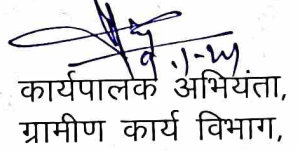 कार्यपालक अभियंता,
ग्रामीण कार्य विभाग,